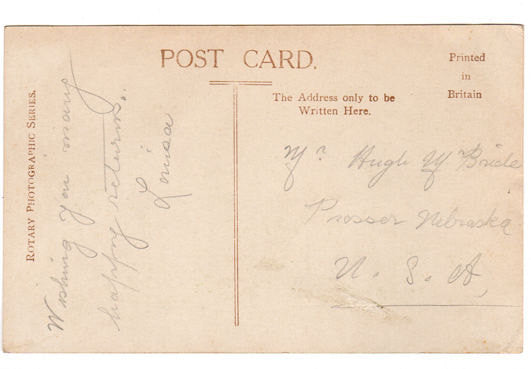 POST CARD.
Printed
in
Britain
The Address only to be
Written Here.
ROTARY PHOTOGRAPHIC SERIES.
Wishing you many
happy returns.
Louisa
Mr Hugh McBride
Prosser Nebraska
U. S. A,